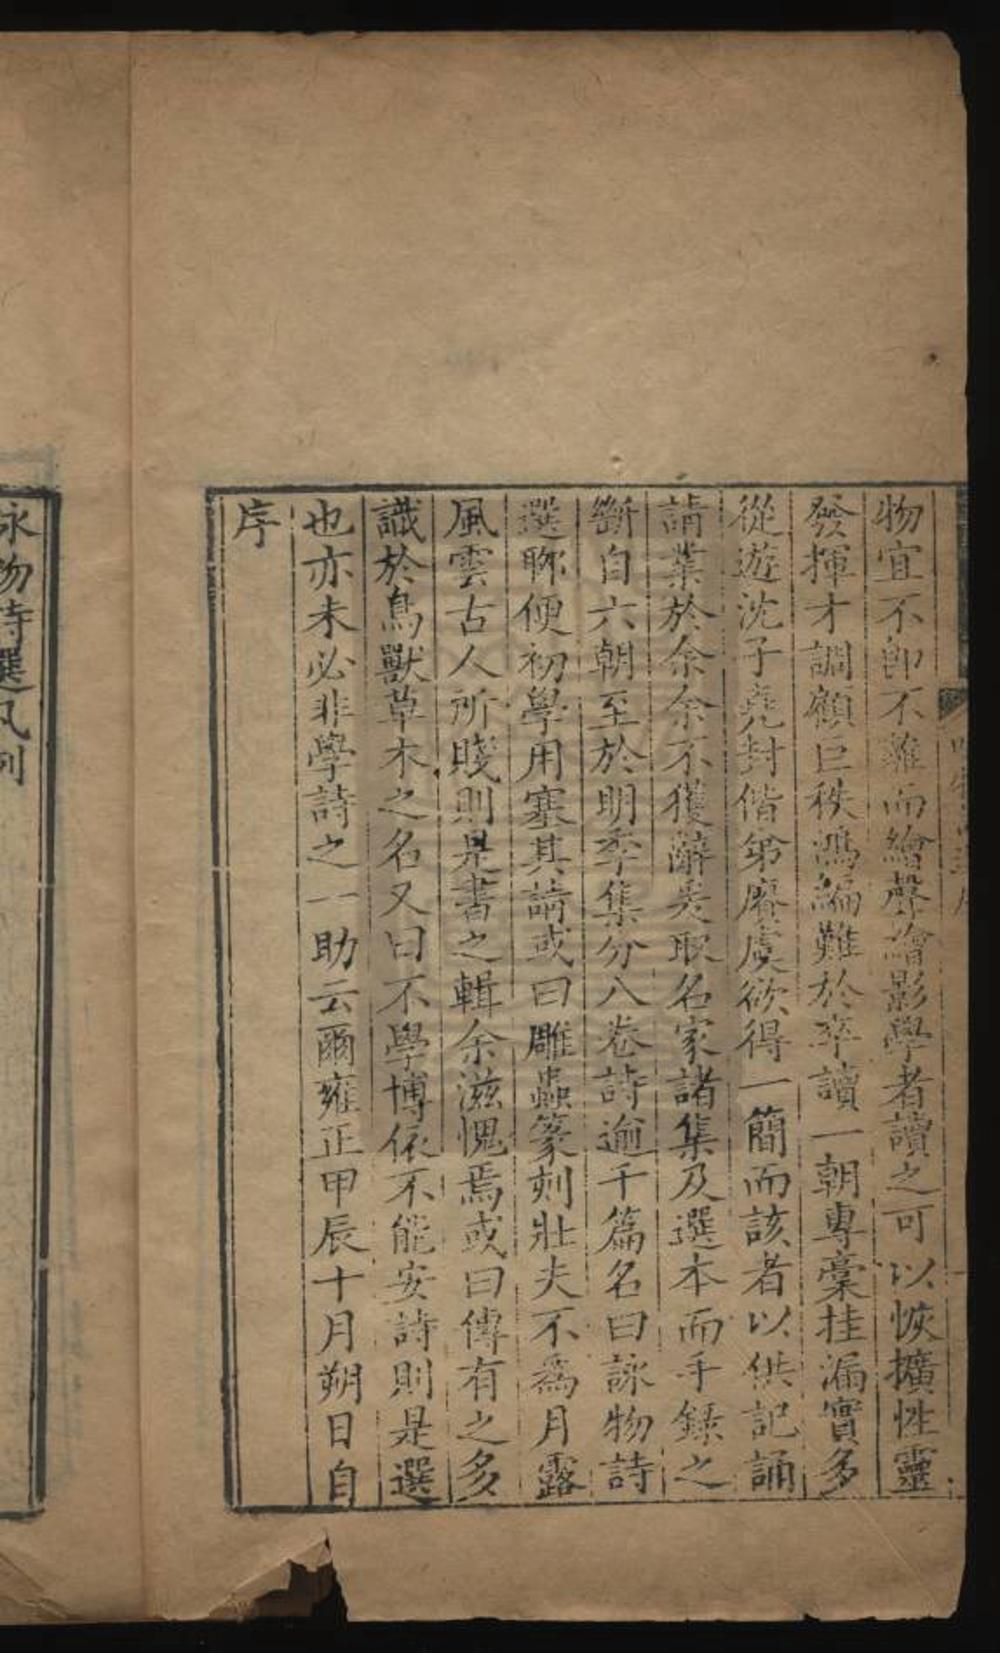 物宜不卽不離而繪聲繪影學者讀之可以恢擴性靈
發揮才調顧巨秩鴻編難於卒讀一朝專稾挂漏實多
從遊沈子堯封偕弟賡虞欲得一簡而該者以供記誦
請業於余余不獲辭爰取名家諸集及選本而手錄之
斷自六朝至於明季集分八卷詩逾千篇名曰詠物詩
選聊便初學用塞其請或曰雕蟲篆刻壯夫不爲月露
風雲古人所賤則是書之輯余滋愧焉或曰傳有之多
識於鳥獸草木之名又曰不學博依不能安詩則是選
也亦未必非學詩之一助云爾雍正甲辰十月朔日自
序
詠物詩選凡例